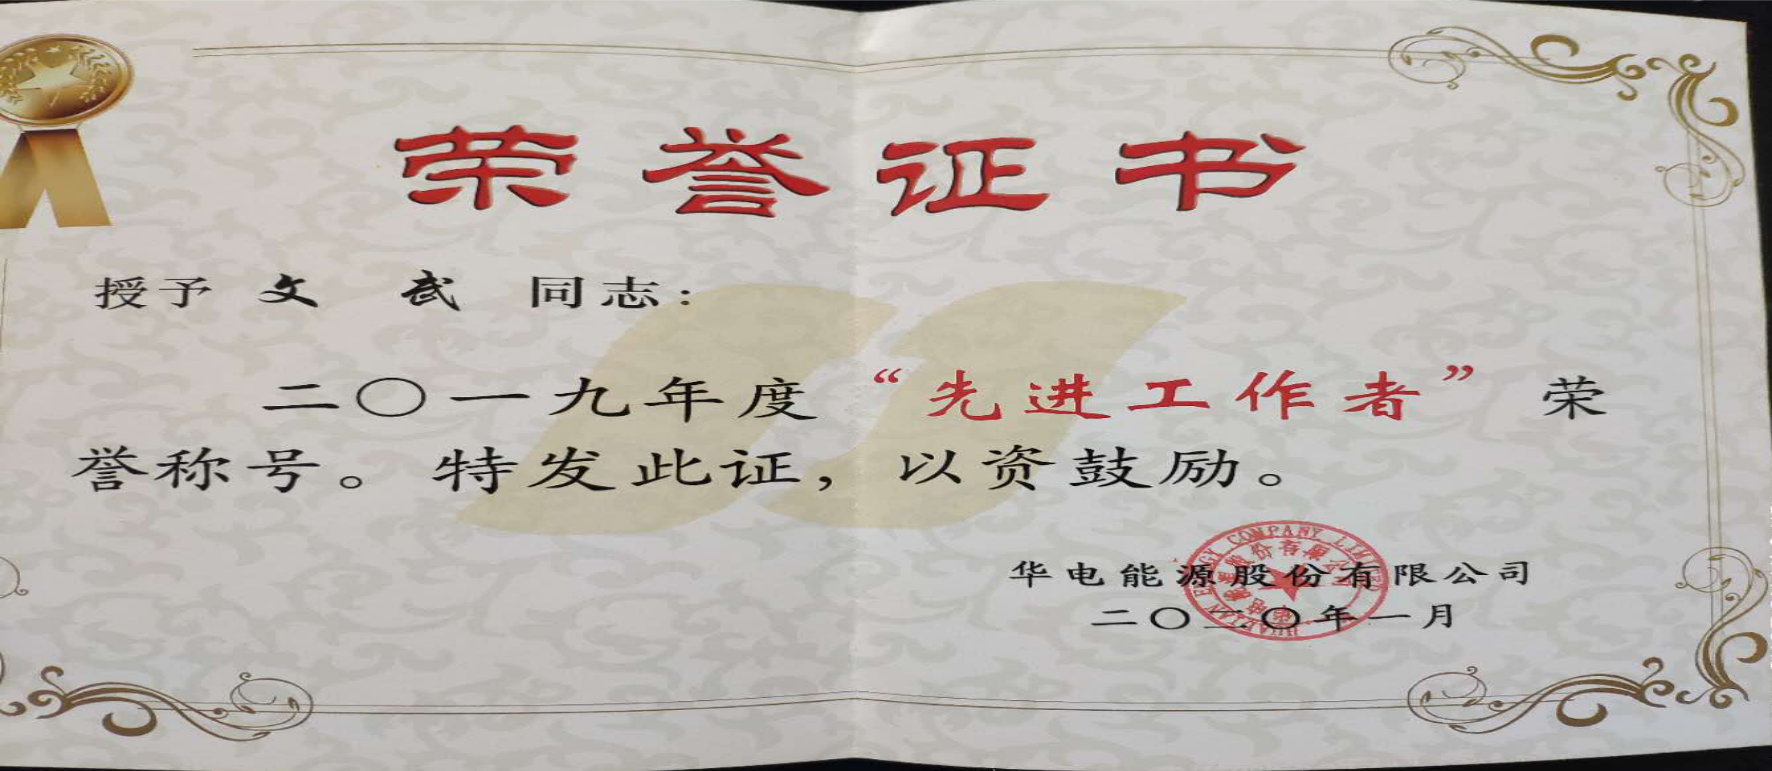 荣誉证书
授予 文 武 同志:
二〇一九年度“先进工作者”荣
誉称号。特发此证,以资鼓励。
华电能源股份有限公司
二〇二〇年一月
COMPANY